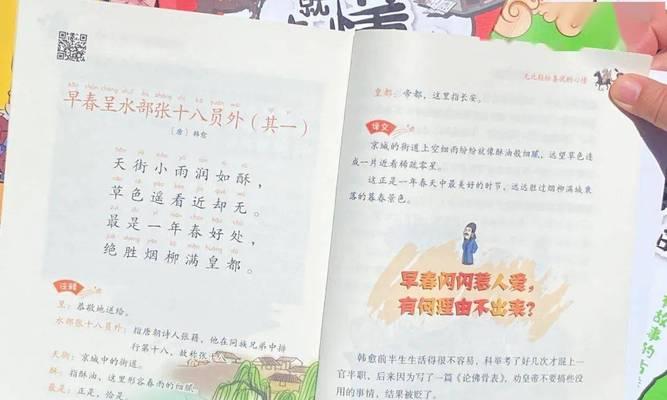 早春呈水部张十八员外（其一）
〔唐〕韩愈
天街小雨润如酥，
草色遥看近却无。
最是一年春好处，
绝胜烟柳满皇都。
注释
呈：恭敬地送给。
水部张十八员外：指唐朝诗人张籍，他在同族兄弟中排
行第十八，故称张十
天街：京城中的街道。
酥：指酥油，这里形容春雨的细腻。
最是：正是，恰是。
皇都：帝都，这里指长安。
译文
京城的街道上空细雨纷纷就像酥油般细腻，远望草色连
成一片近看稀疏零星。
这正是一年春天中最美好的时节，远远胜过烟柳满城衰
落的暮春景色。
早春闪闪惹人爱，
有何理由不出来？
韩愈前半生生活得很不容易，科举考了好几次才混上一
官半职，后来因为写了一篇《论佛骨表》，劝皇帝不要搞些没
用的事情，结果被贬了。